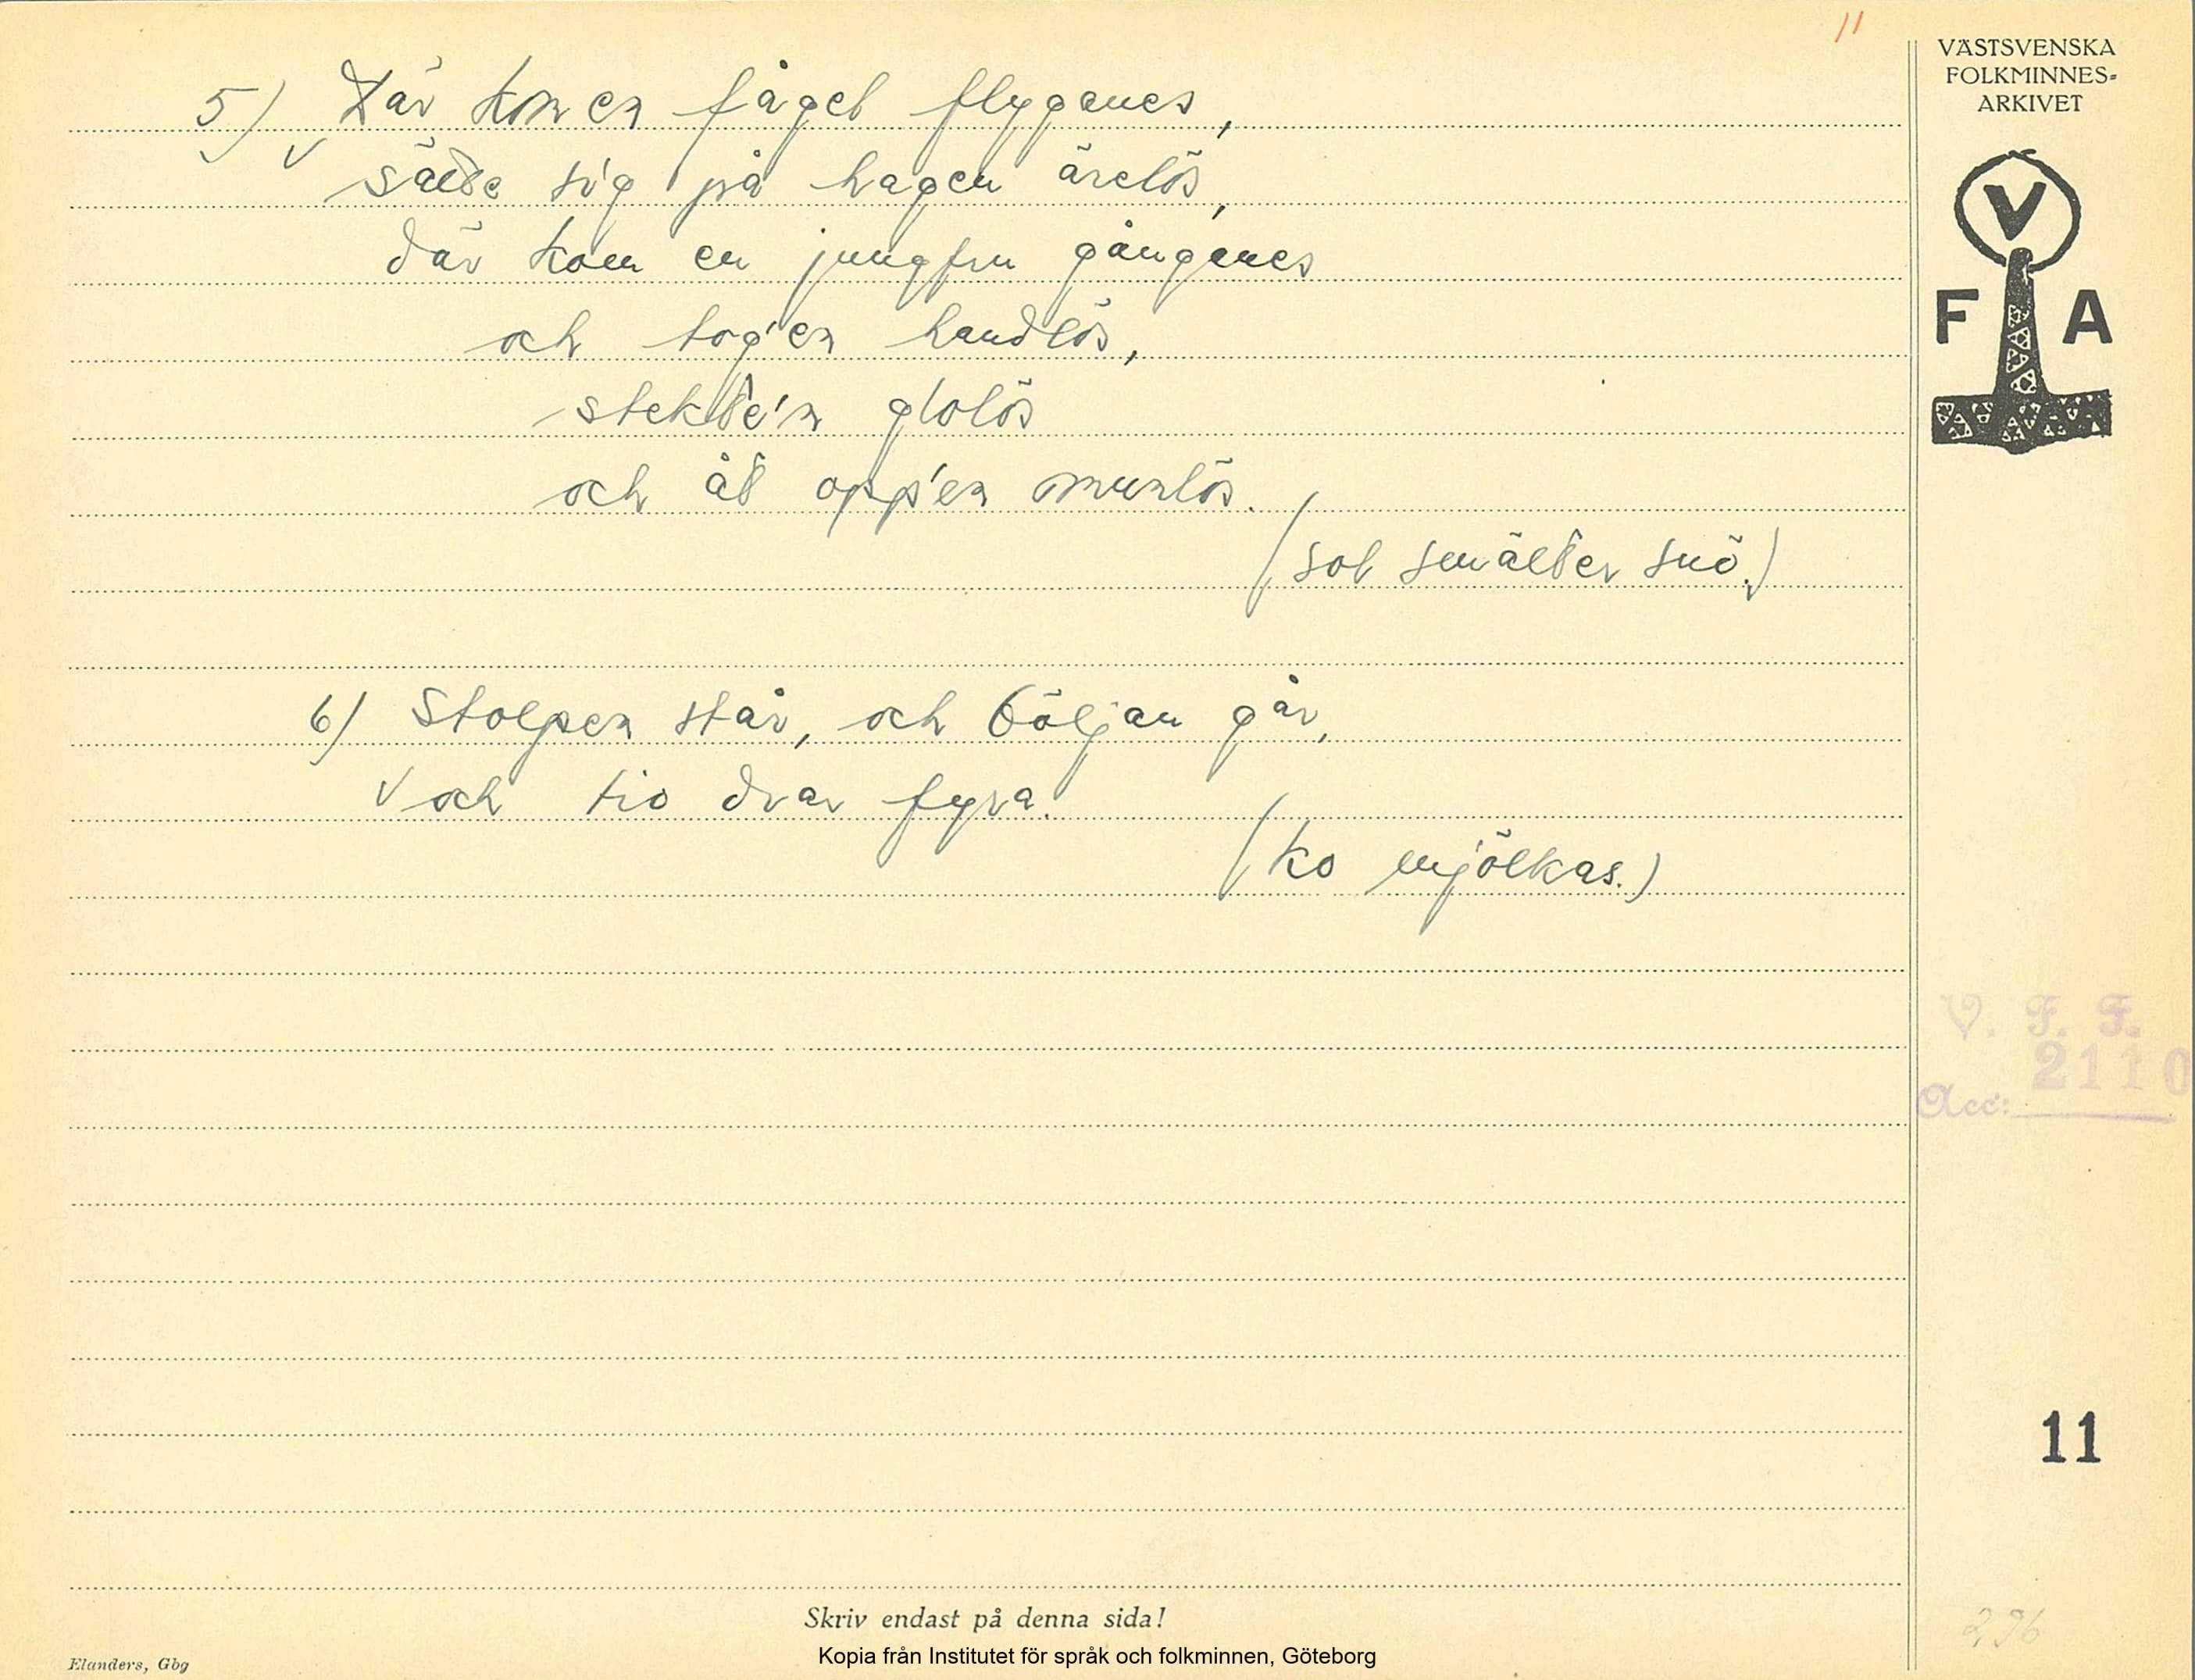 11
VÄSTSVENSKA
FOLKMINNES-
ARKIVET
V
F A
5) Där kom en fågel flyganes,
satte sig på hagen ärelös,
där kom en jungfru gånganes
och tog'en handlös,
stekte'n glolös
och åt opp'en munlös.
(sol smälter snö.)
6) Stolpen står, och böljan går,
och tio drar fyra.
(ko mjölkas.)
V. F. F.
2110
Acc:
11
Skriv endast på denna sida!
Kopia från Institutet för språk och folkminnen, Göteborg
Elanders, Gbg
296